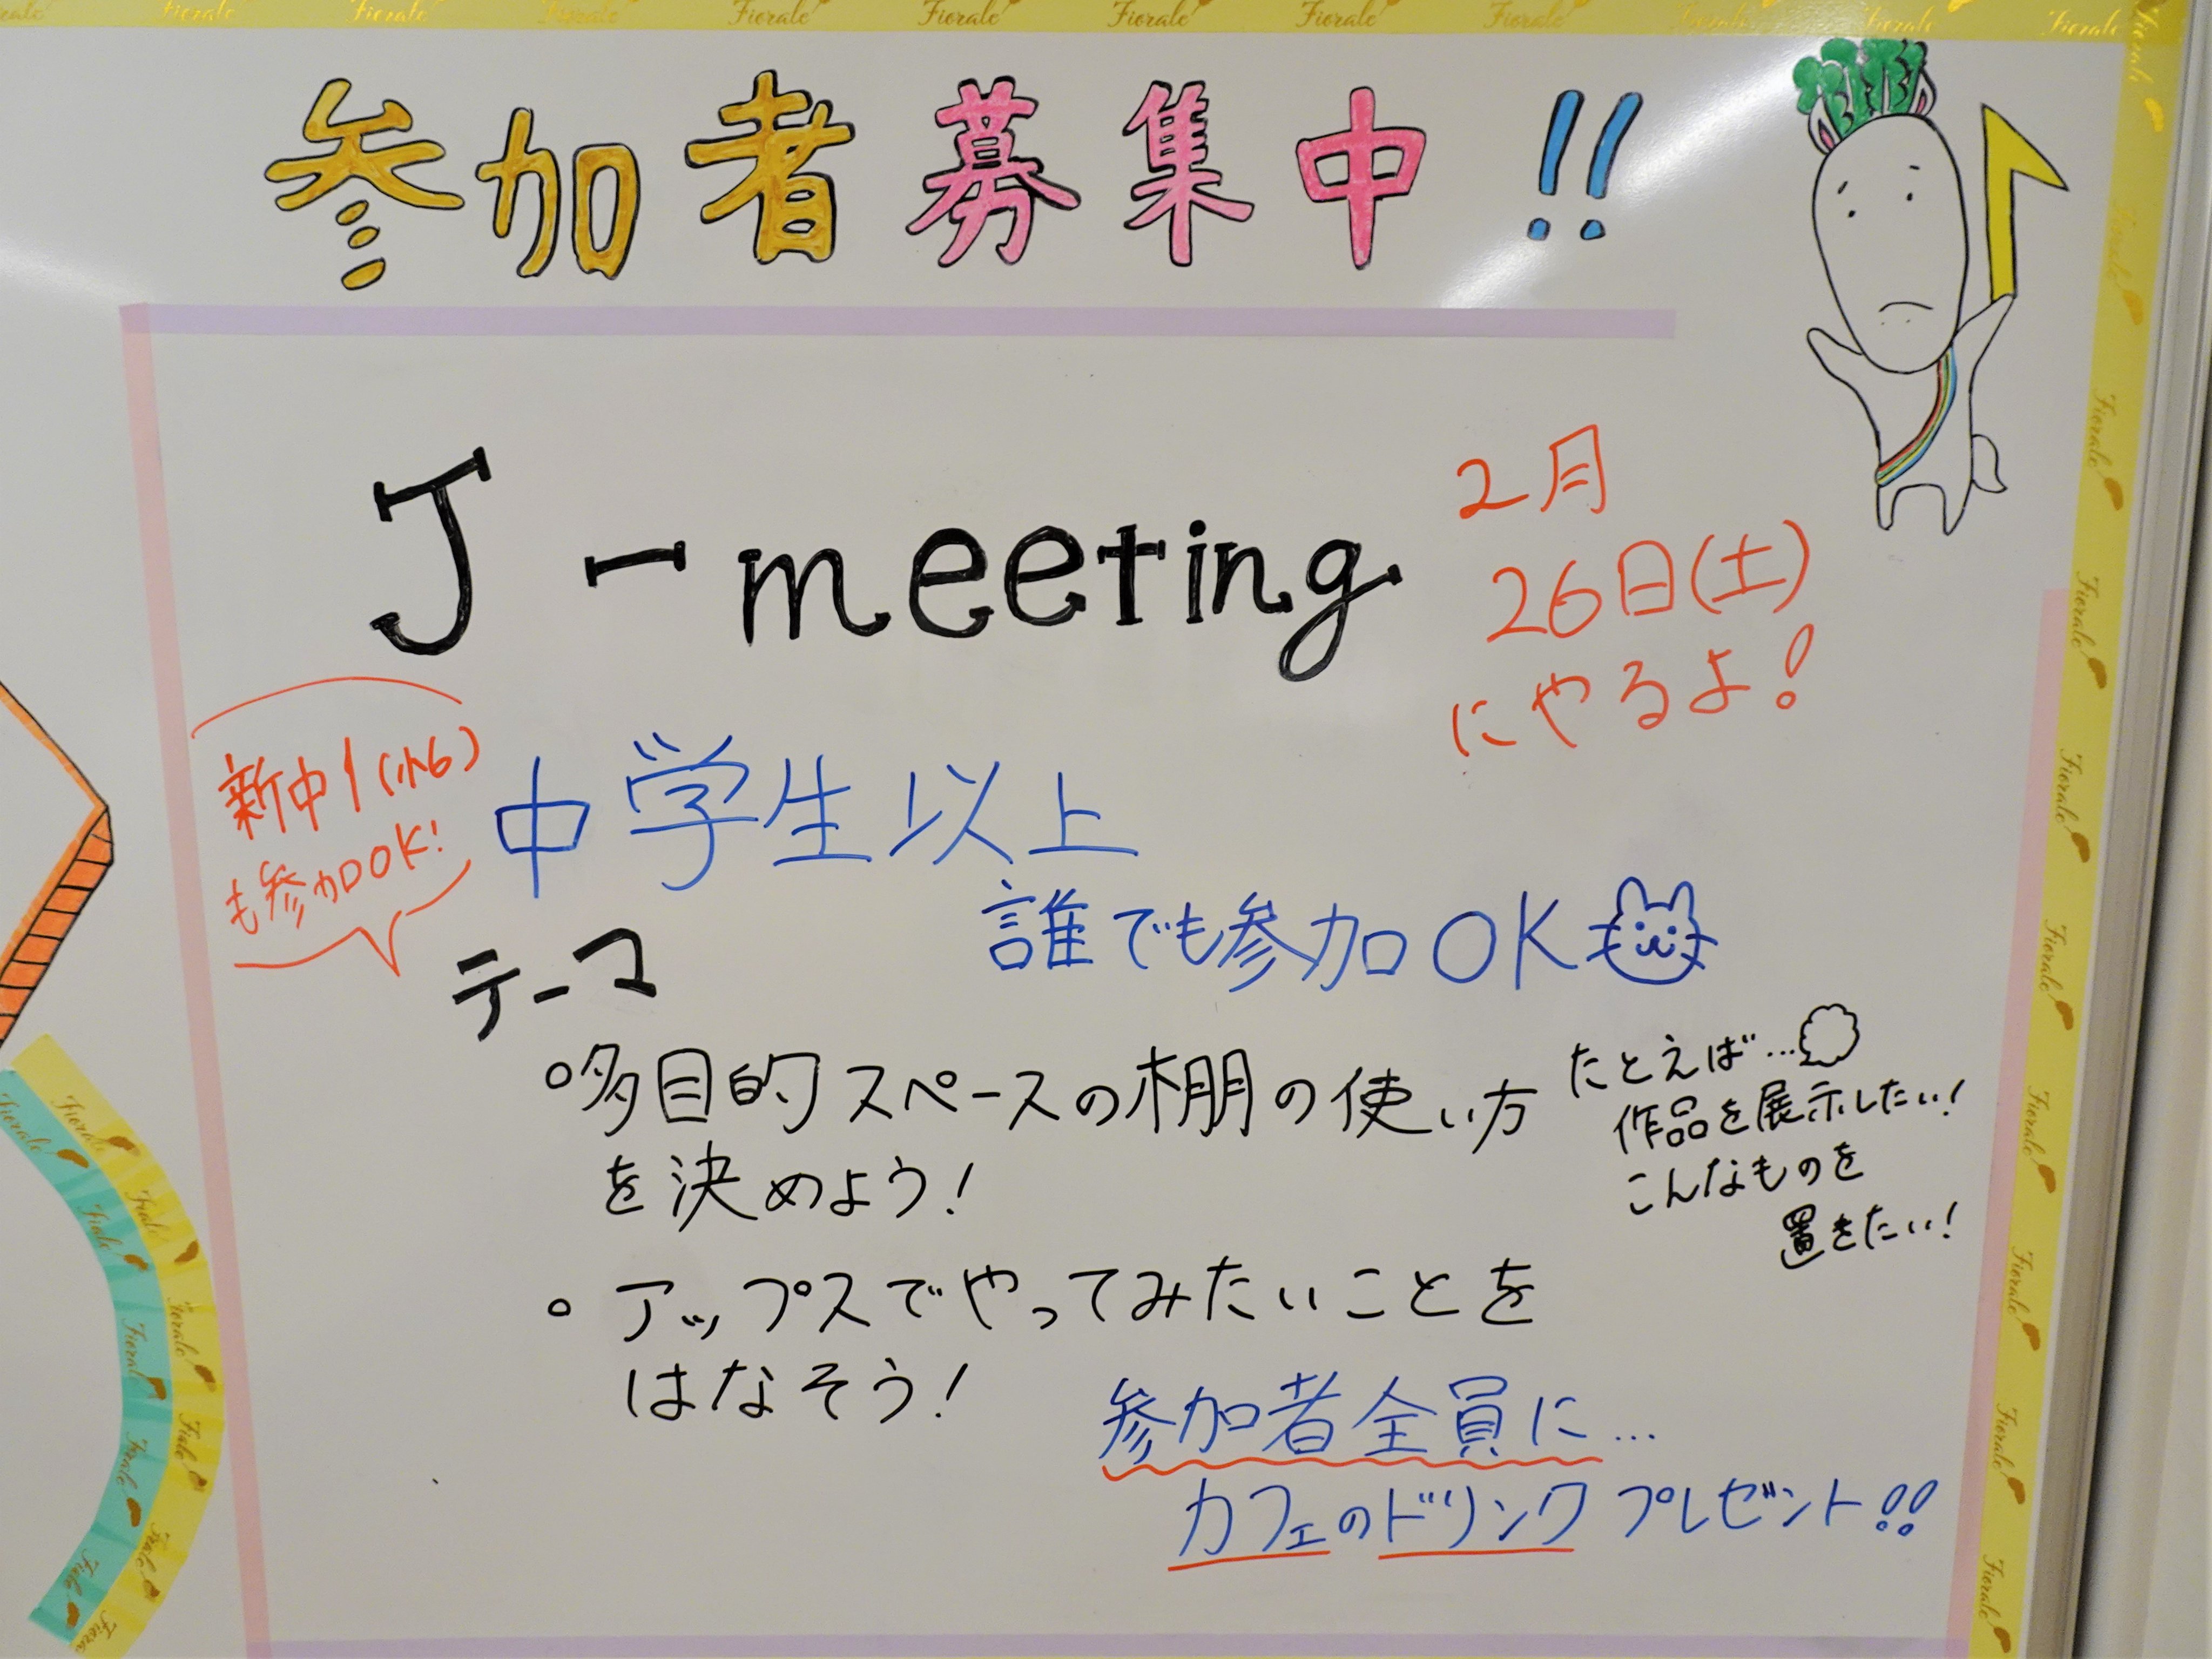 参加者募集中!!
J-meeting
2月
26日(土)
にやるよ!
新中1(小6)
も参加OK!
中学生以上
誰でも参加OK
テーマ
°多目的スペースの棚の使い方
を決めよう!
たとえば…
作品を展示したい!
こんなものを
置きたい!
° アップスでやってみたいことを
はなそう!
参加者全員に…
カフェのドリンクプレゼント!!